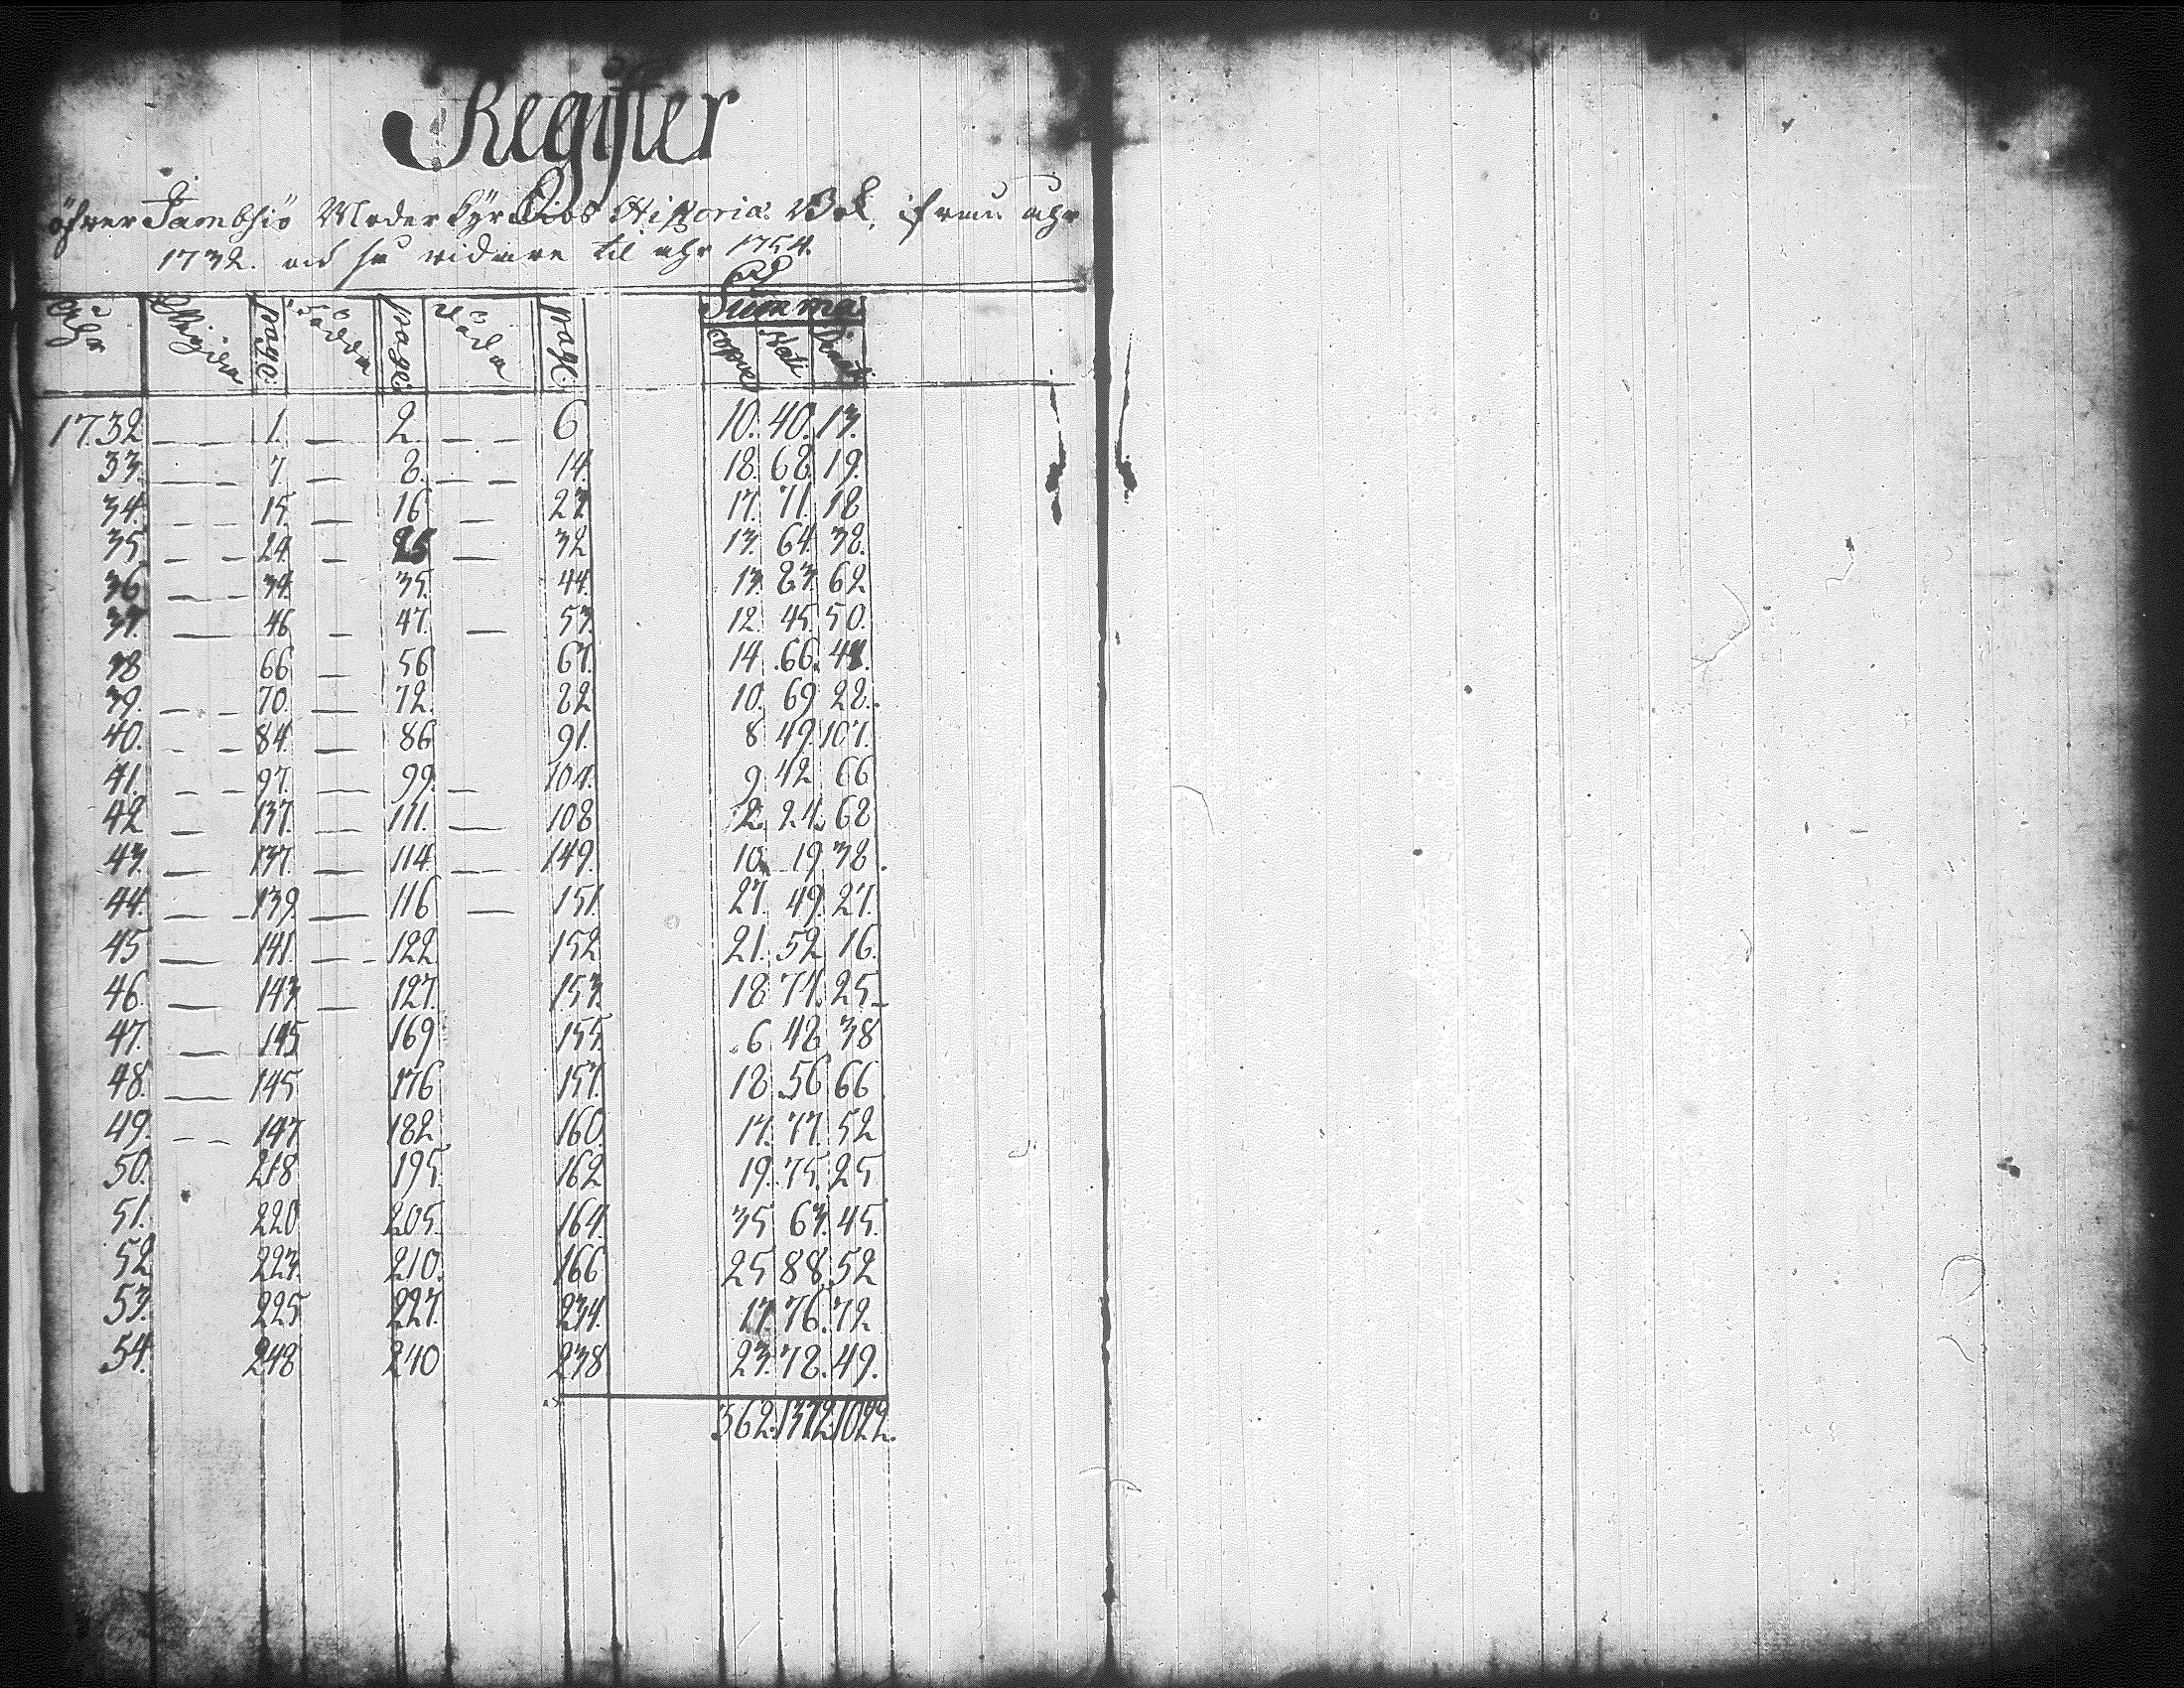 Register
öfwer Jambsiö Moder Kÿrckios Historiæ Bok, ifrån ahr
1732. och så vidare til ahr 1754.
Summa
Åhr Wigde page: Födde page: Döde page: Copul: Nati Denati
1732 — — 1. — 2 — — 6 10. 40. 13.
33. — — 7. — 8. — — 14. 18. 68. 19.
34. — — 15. — 16 — 23 17. 71. 18
35. — — 24. — 25 — 32 13. 64. 38.
36. — — 34. 35. 44. 13. 83. 62
37. — 46 — 47. — 53. 12. 45. 50.
38 66 — 56 67. 14 66.
39. — — 70. — 72. 82 10. 69 28.
40. — — 84. — 86 91. 8 49. 107.
41. — — 97. — 99. — 104. 9 42 66
42 — 137. — 111. — 108 12. 24. 68
43. — 137. — 114. — 149. 10. 19 38.
44. — — 139. — 116 — 151. 27. 49. 27.
45 — 141. — - 122. 152 21. 52 16.
46. — 143 — 127. 153. 18 71. 25.
47. — 145 169 155. 6 48 38
48. — 145 176 157. 18 56 66
49. — — 147 182. 160. 17. 77. 52
50. 218 195. 162 19. 75. 25
51. 220 205. 164. 35 63. 45.
52 223. 210. 166 25 88. 52
53. 225 227. 234. 17. 76. 72
54. 248 240 238 23. 78. 49.
362. 1372. 1022.